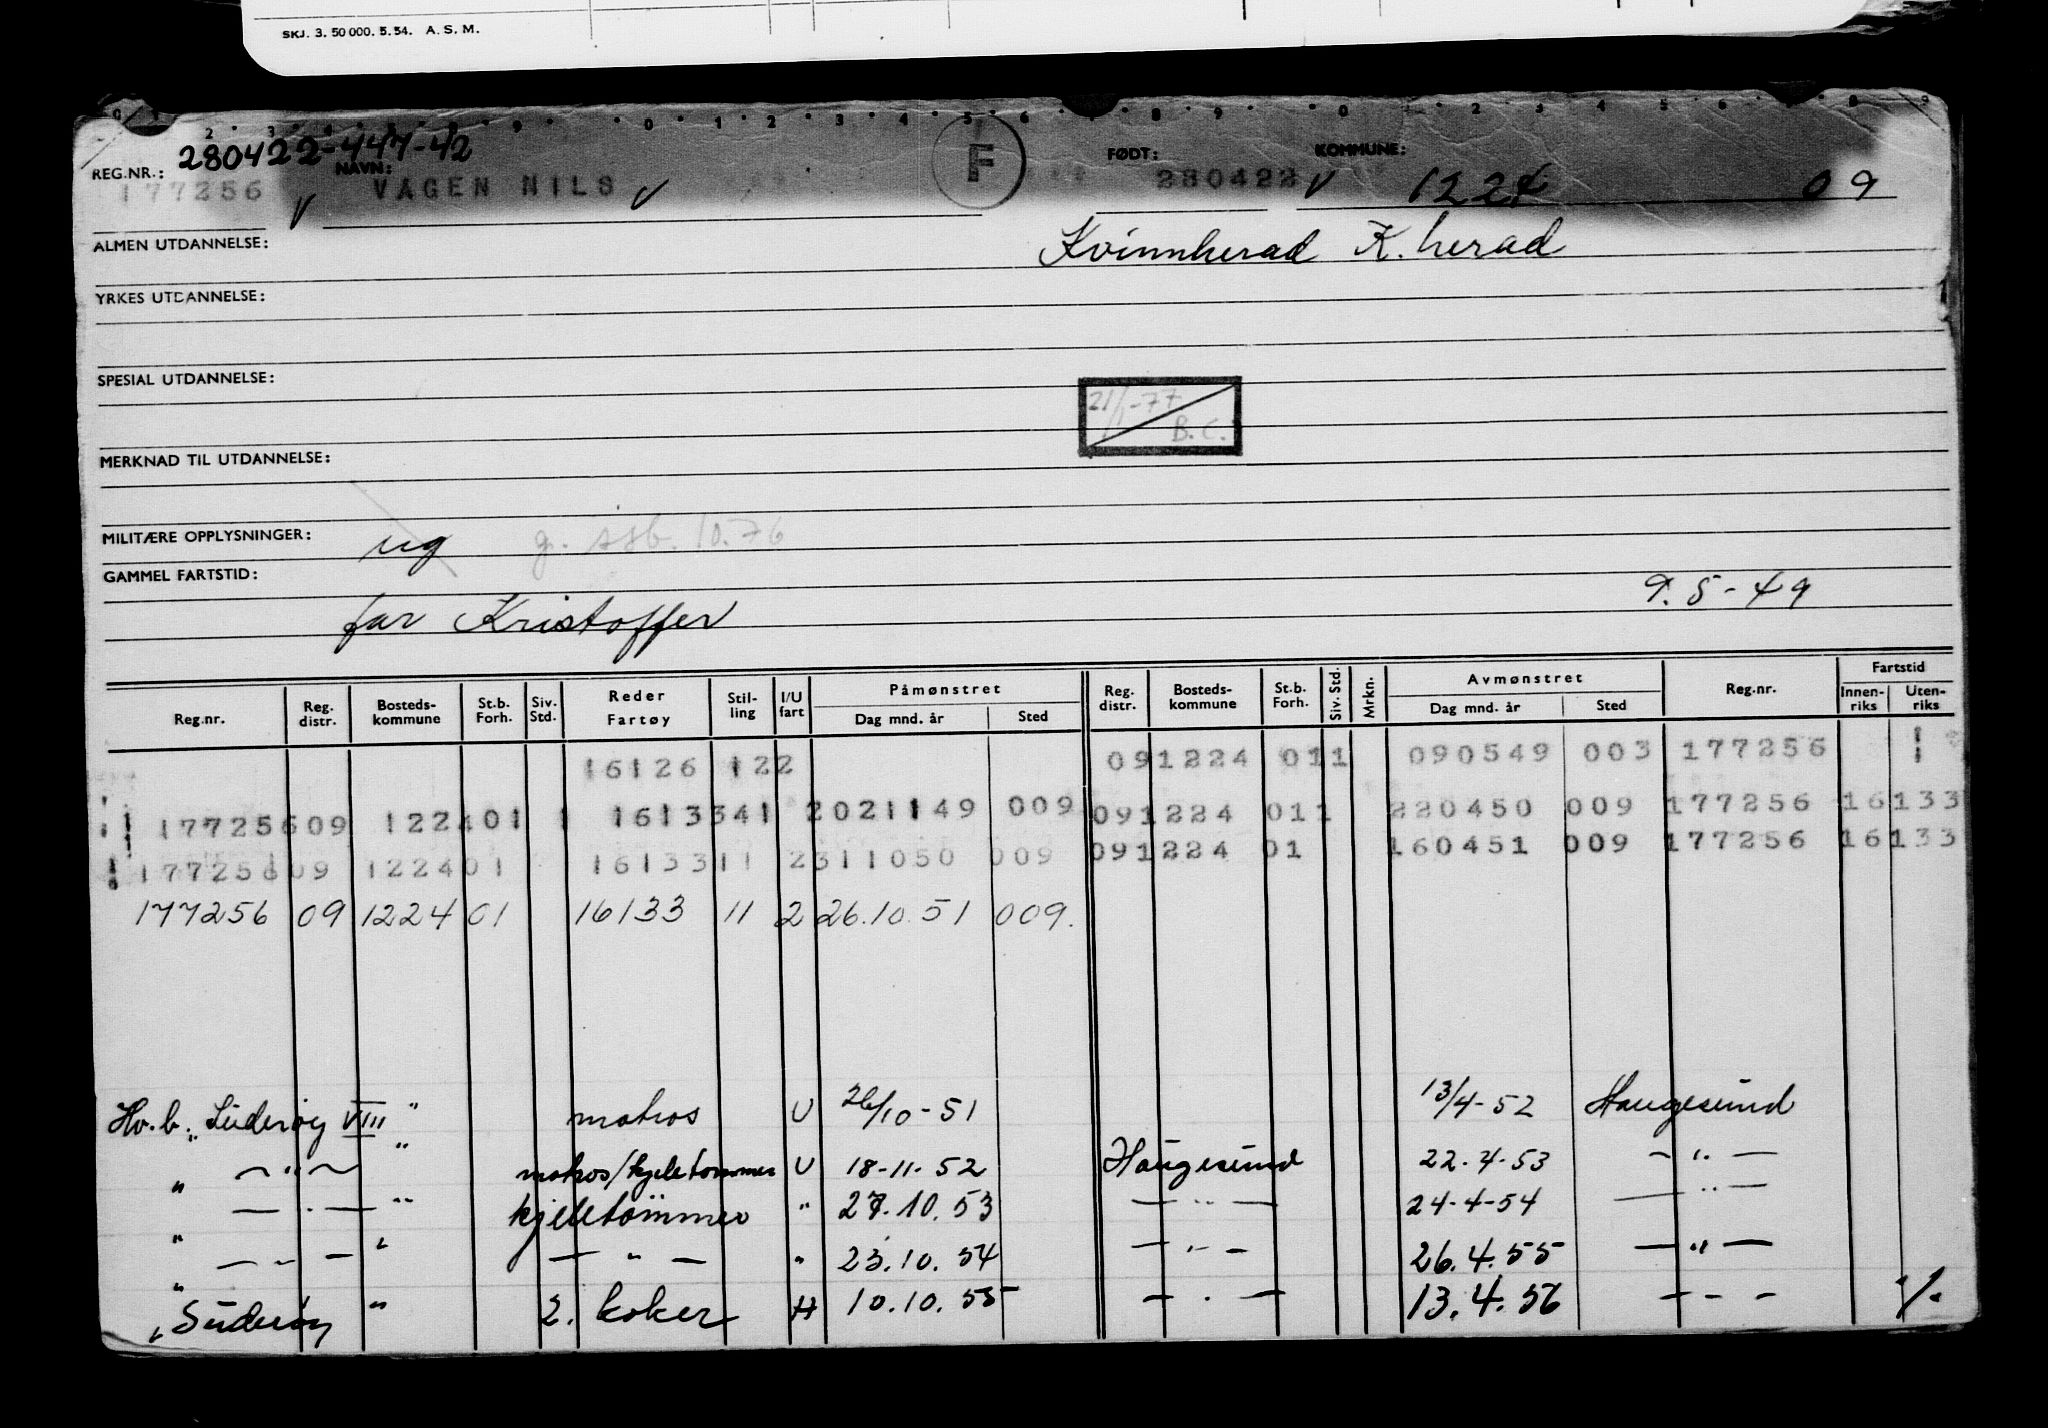 SKJ. 3. 50 000. 5. 54. A. S. M.
REG.NR.: 280422-447-42 NAVN: F FØDT: KOMMUNE:
177256 V VAGEN NILS V 280422 V 1224 09
ALMEN UTDANNELSE: Kvinnherad K. herad
YRKES UTDANNELSE:
SPESIAL UTDANNELSE:
21/1-77
B.C.
MERKNAD TIL UTDANNELSE:
MILITÆRE OPPLYSNINGER: ug 10.76
GAMMEL FARTSTID: 9.5-49
far Kristoffer
Reg.nr. Reg. distr. Bosteds-kommune St.b. Forh. Siv. Std. Reder Fartøy Stil-ling I/U fart Påmønstret Dag mnd. år Sted Reg. distr. Bosteds-kommune St.b. Forh. Siv. Std. Mrkn. Avmønstret Dag mnd. år Sted Reg.nr. Fartstid Innen-riks Uten-riks
16126 122 091224 011 090549 003 177256
177256 09 1224 01 1 16133 41 2 021149 009 091224 011 220450 009 177256 16133
177256 09 1224 01 16133 11 2 311050 009 091224 01 160451 009 177256 16133
177256 09 1224 01 16133 11 2 26.10.51 009.
Hv.b. Suderøy VIII " matros U 26/10-51 13/4-52 Haugesund
" — " — " matros/kjeletømmer U 18-11-52 Haugesund 22.4-53 — " —
" — " — " kjeletømmer " 27.10.53 — " — 24-4-54 — " —
" — " — " — " — " 23.10.54 — " — 26.4.55 — " —
" Suderøy " 2. koker H 10.10.55 — " — 13.4.56 — " — %